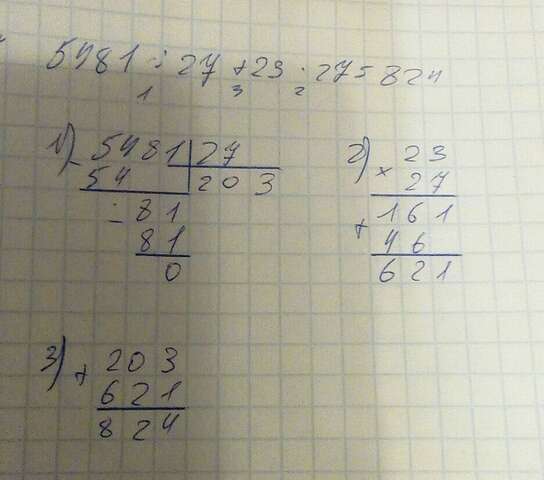 5481 : 27 + 23 · 27 = 824
1 3 2
1) - 5481 | 27
54 | 203
- 81
81
0
2) × 23
27
+ 161
46
621
3) + 203
621
824